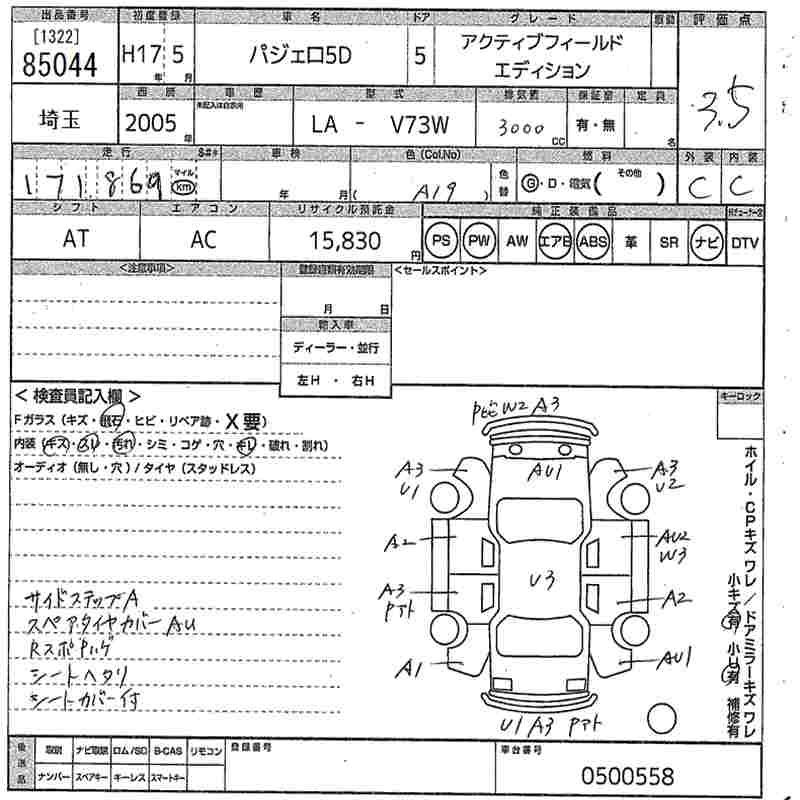 出品番号 初度登録 車名 ドア グレード 駆動 評価点
[1322]
85044 H17 5 パジェロ5D 5 アクティブフィールド
エディション
年 月
3.5
西暦 車歴 型式 排気量 保証書 定員
未記入は自家用
埼玉 2005年 LA - V73W 3000 CC 有・無 名
走行 車検 色(Col.No) 燃料 外装 内装
171,869 マイル km 年 月 ( A19 ) 色替 G・D・電気( その他 ) C C
シフト エアコン リサイクル預託金 純正装備品
AT AC 15,830円 PS PW AW エアB ABS 革 SR ナビ DTV
<注意事項> 登録書類有効期限 <セールスポイント>
月 日
輸入車
ディーラー・並行
左H ・ 右H
<検査員記入欄> キーロック
Fガラス(キズ・飛石・ヒビ・リペア跡・X要)
内装(キズ・スレ・汚れ・シミ・コゲ・穴・キレ・破れ・割れ)
オーディオ(無し・穴)/タイヤ(スタッドレス)
PヒビW2 A3
AU1
A3
U1
A3
U2
A2
AU2
W3
U3
A3
Pアト
A2
A1
AU1
U1 A3 Pアト
ホイル・CPキズ ワレ/ドアミラーキズ ワレ
小キズ有 小U有 補修有
サイドステップA
スペアタイヤカバーAU
RスポPハゲ
シートヘタリ
シートカバー付
後送品 取説 ナビ取説 ロム/SD B-CAS リモコン 登録番号 車台番号
ナンバー スペアキー キーレス スマートキー
0500558